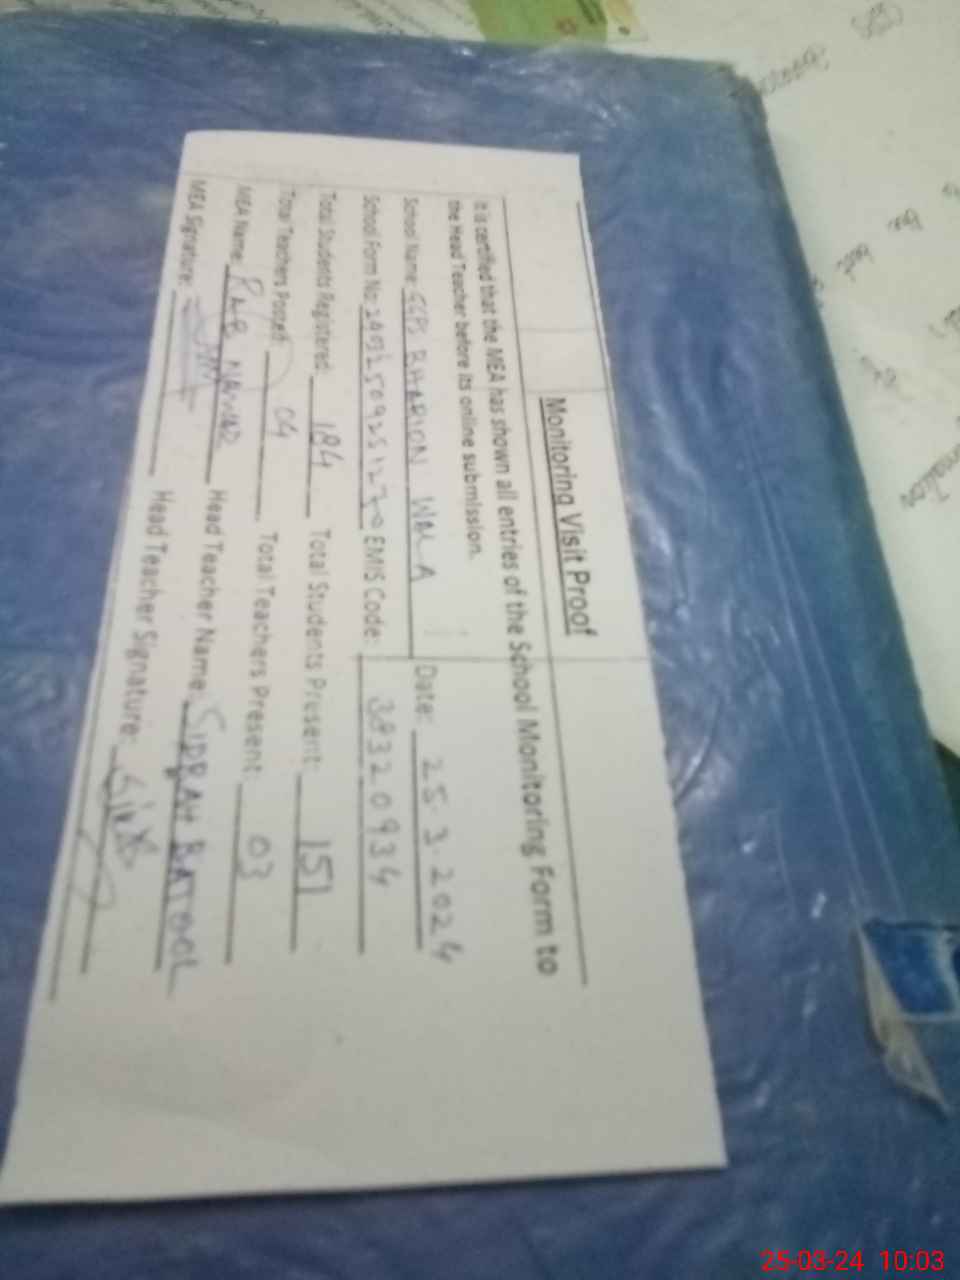 Monitoring Visit Proof
It is certified that the MEA has shown all entries of the School Monitoring Form to
the Head Teacher before its online submission.
School Name: GGPS BHARION WALA Date: 25-3-2024
School Form No: EMIS Code: 38320934
Total Students Registered: 184 Total Students Present: 151
Total Teachers Posted: 04 Total Teachers Present: 03
MEA Name: NAWAZ Head Teacher Name: SIDRAH BATOOL
MEA Signature: Head Teacher Signature:
25-03-24 10:03